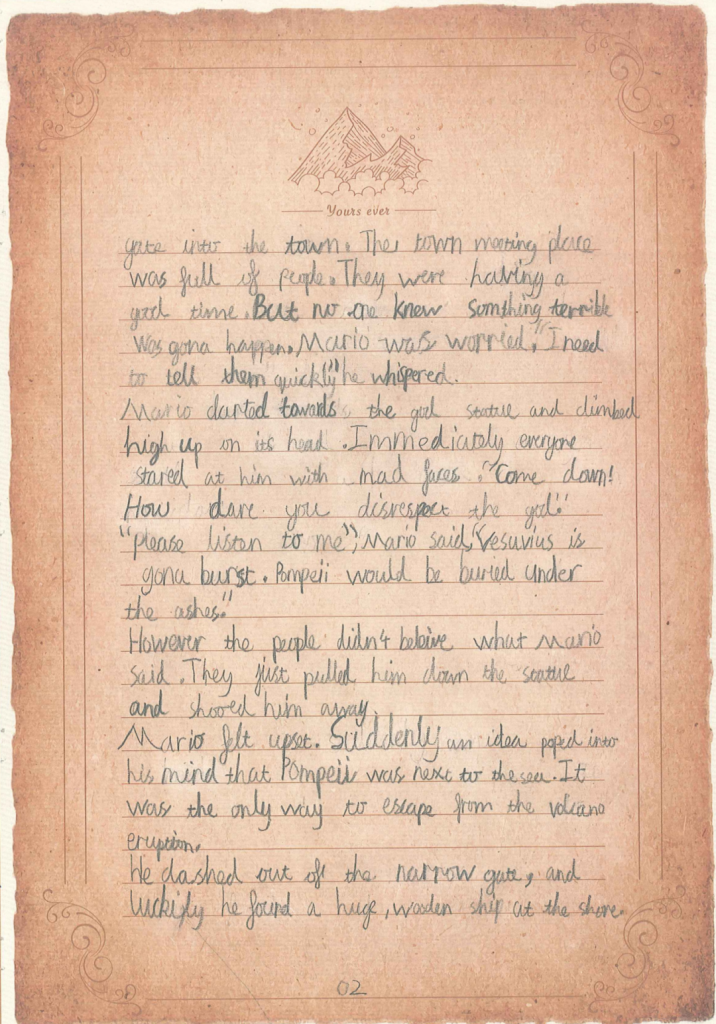 Yours ever
gate into the town. The town meeting place
was full of people. They were having a
good time. But no one knew somthing terrible
was gona happen. Mario was worried. "I need
to tell them quickly" he whispered.
Mario darted towards the god statue and climbed
high up on its head. Immediately everyone
stared at him with mad faces. "Come down!
How dare you disrespect the god."
"please listen to me", Mario said, "Vesuvius is
gona burst. Pompeii would be buried under
the ashes."
However the people didn't beleive what Mario
said. They just pulled him down the statue
and shooed him away.
Mario felt upset. Suddenly an idea poped into
his mind that Pompeii was next to the sea. It
was the only way to escape from the volcano
eruption.
He dashed out of the narrow gate, and
luckily he found a huge, wooden ship at the shore.
02